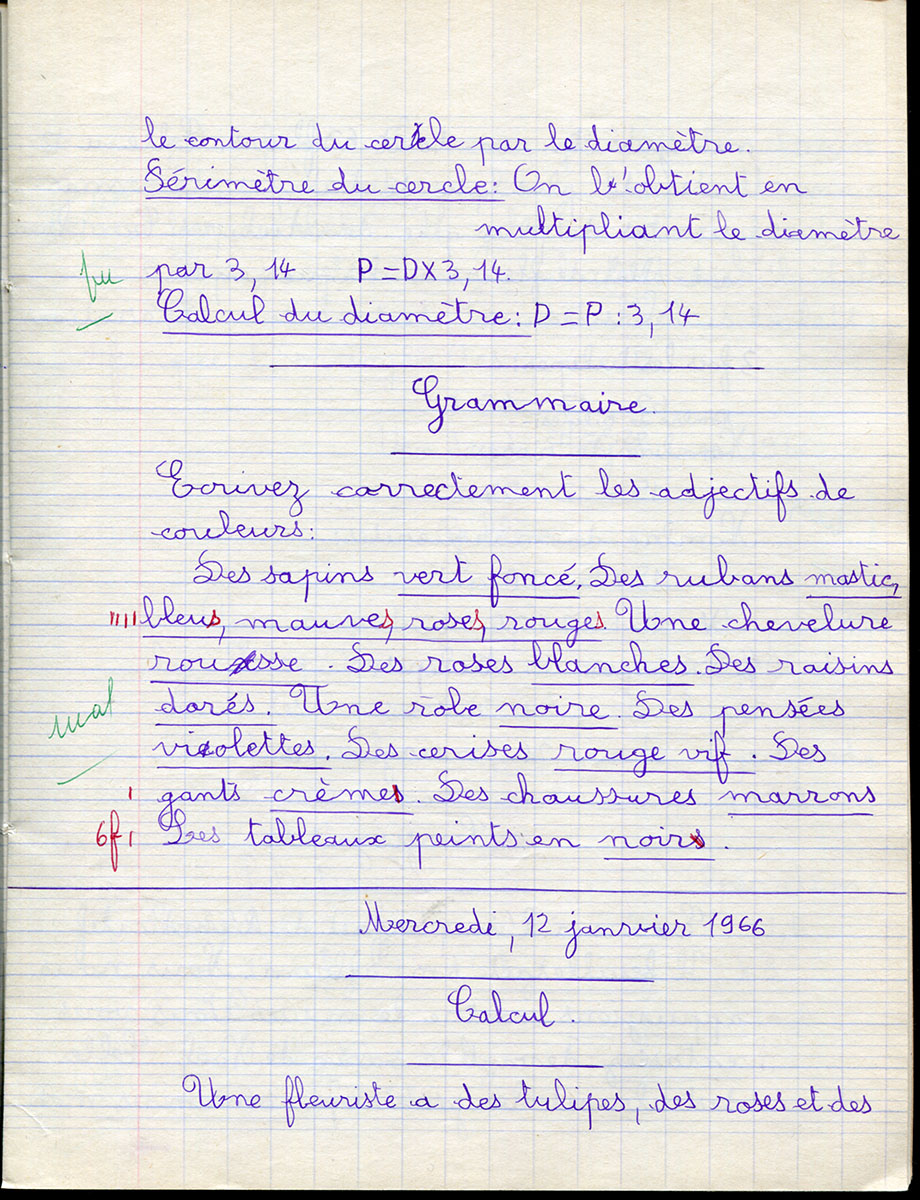 le contour du cercle par le diamètre.
Périmètre du cercle: On l'obtient en
multipliant le diamètre
vu par 3,14 P=D×3,14.
Calcul du diamètre: D=P:3,14
Grammaire.
Ecrivez correctement les adjectifs de
couleurs:
Des sapins vert foncé. Des rubans mastic,
bleus, mauves, roses, rouges. Une chevelure
rousse. Des roses blanches. Des raisins
dorés. Une robe noire. Des pensées
mal
violettes. Des cerises rouge vif. Des
gants crèmes. Des chaussures marrons
6f Des tableaux peints en noirs.
Mercredi, 12 janvier 1966
Calcul.
Une fleuriste a des tulipes, des roses et des